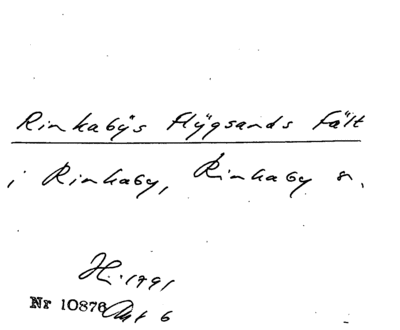 Rinkabÿs flÿgsands fält
i Rinkaby, Rinkaby sn.
1791
Nr 10876 Akt 6